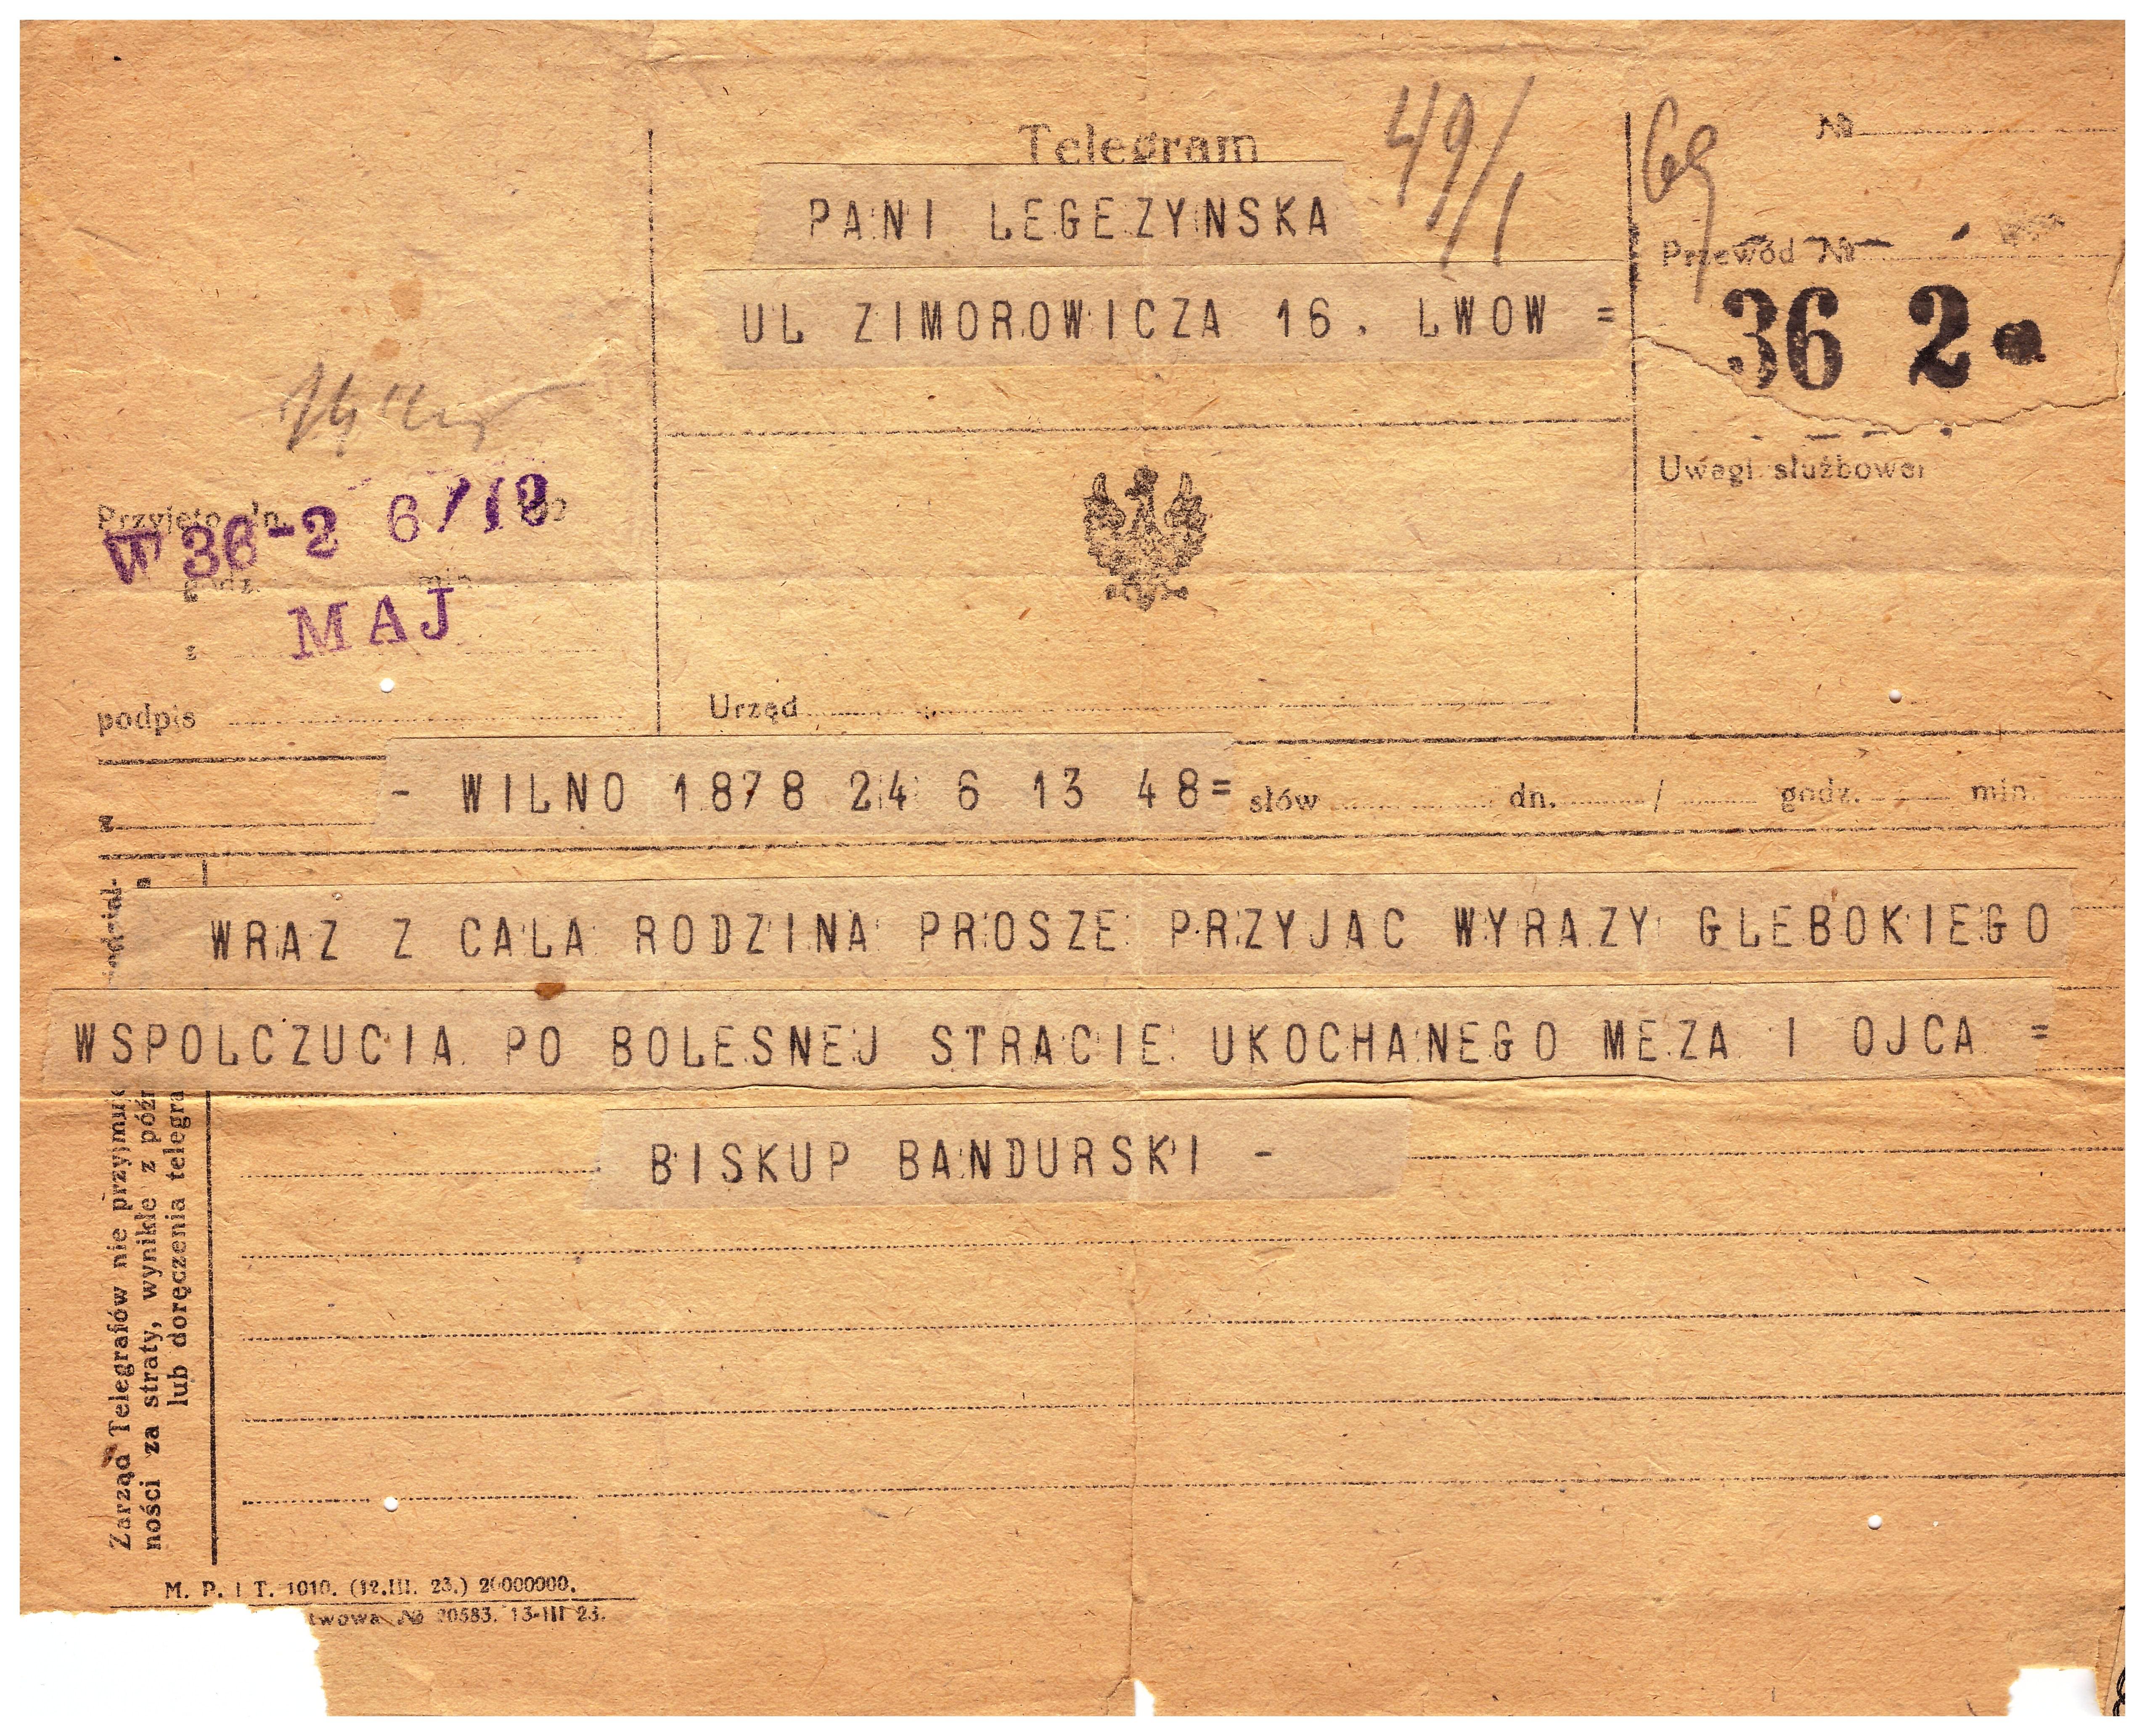 Telegram
49/1
69
№
PANI LEGEZYNSKA
Przewód №
UL ZIMOROWICZA 16. LWOW =
36 2
Uwagi służbowe:
Przyjęto dn.
W 36-2 6/12
godz. min.
MAJ
z
podpis
Urząd
- WILNO 1878 24 6 13 48=
słów dn. / godz. min.
z
WRAZ Z CALA RODZINA PROSZE PRZYJAC WYRAZY GLEBOKIEGO
WSPOLCZUCIA PO BOLESNEJ STRACIE UKOCHANEGO MEZA I OJCA =
BISKUP BANDURSKI -
Zarząd Telegrafów nie przyjmuje
ności za straty, wynikłe z późn
lub doręczenia telegra
M. P. i T. 1010. (12.III. 23.) 20000000.
Lwowa № 20583. 13-III 23.